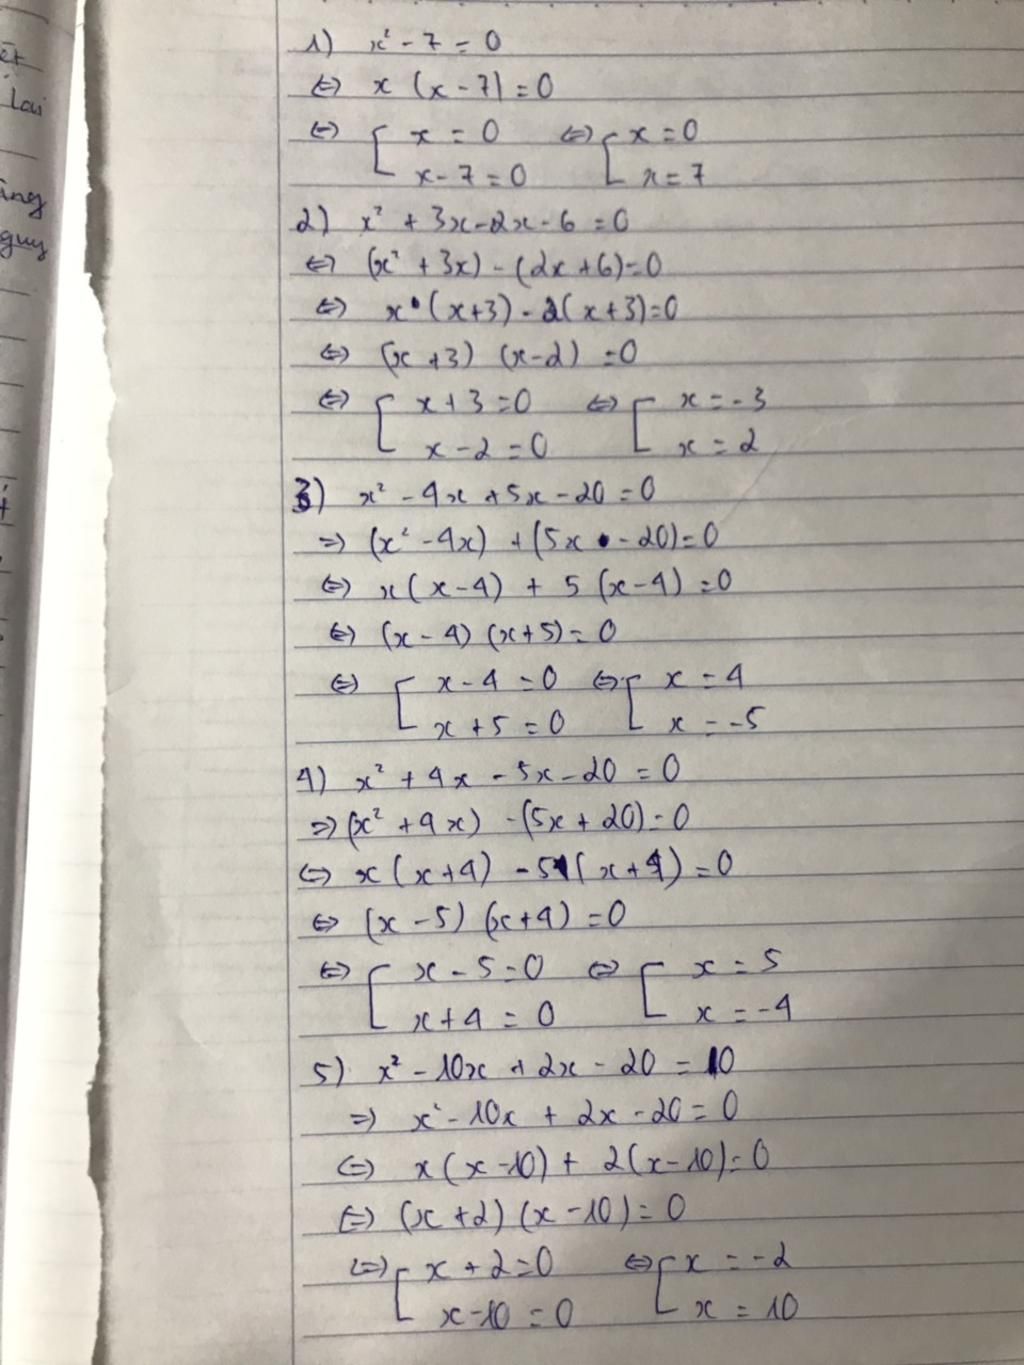 ết
lai
ăng
quy
1) x² - 7 = 0
⇔ x (x - 7) = 0
⇔ [ x = 0 ⇔ [ x = 0
x - 7 = 0 x = 7
2) x² + 3x - 2x - 6 = 0
⇔ (x² + 3x) - (2x + 6) = 0
⇔ x • (x+3) - 2(x+3) = 0
⇔ (x+3) (x-2) = 0
⇔ [ x + 3 = 0 ⇔ [ x = -3
x - 2 = 0 x = 2
3) x² - 4x + 5x - 20 = 0
⇒ (x² - 4x) + (5x - 20) = 0
⇔ x(x - 4) + 5 (x - 4) = 0
⇔ (x - 4) (x+5) = 0
⇔ [ x - 4 = 0 ⇔ [ x = 4
x + 5 = 0 x = -5
4) x² + 4x - 5x - 20 = 0
⇒ (x² + 4x) - (5x + 20) = 0
⇔ x (x+4) - 5 (x+4) = 0
⇔ (x - 5) (x+4) = 0
⇔ [ x - 5 = 0 ⇔ [ x = 5
x + 4 = 0 x = -4
5) x² - 10x + 2x - 20 = 0
⇒ x² - 10x + 2x - 20 = 0
⇔ x (x - 10) + 2(x - 10) = 0
⇔ (x + 2) (x - 10) = 0
⇔ [ x + 2 = 0 ⇔ [ x = -2
x - 10 = 0 x = 10